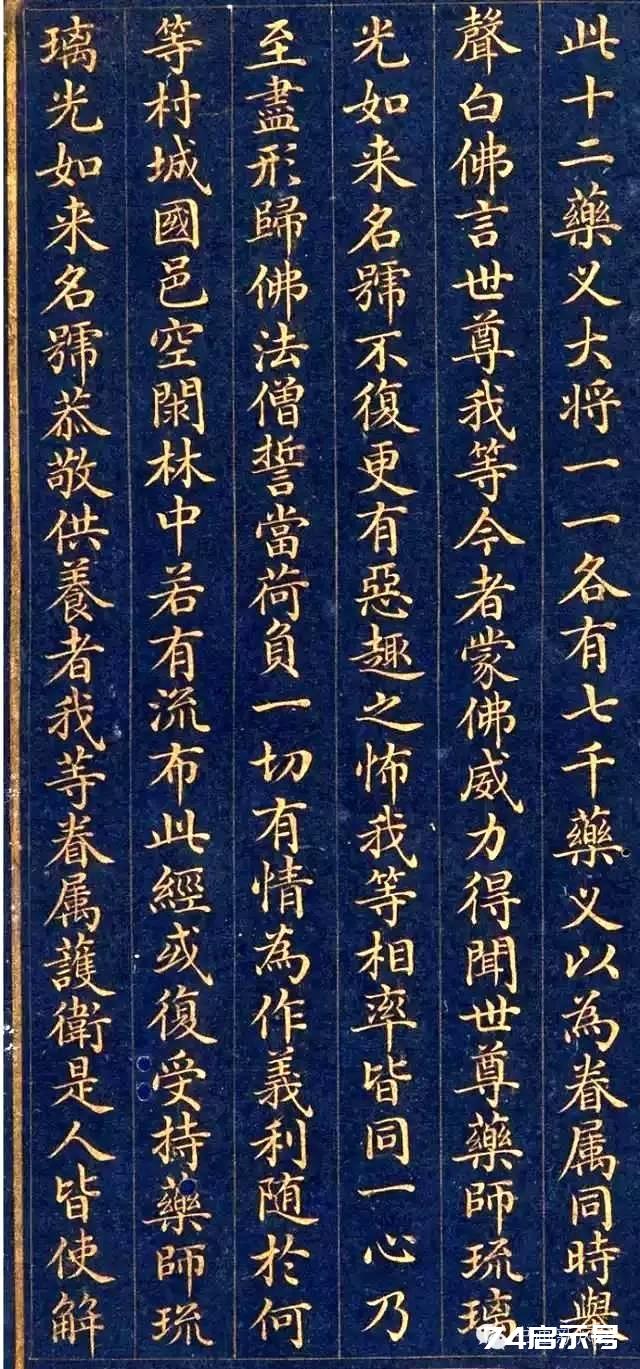 此十二藥叉大将一一各有七千藥叉以為眷属同時舉
聲白佛言世尊我等今者蒙佛威力得聞世尊藥師琉璃
光如来名號不復更有惡趣之怖我等相率皆同一心乃
至盡形歸佛法僧誓當荷負一切有情為作義利随於何
等村城國邑空閑林中若有流布此經或復受持藥師琉
璃光如来名號恭敬供養者我等眷属護衛是人皆使解
74启示号